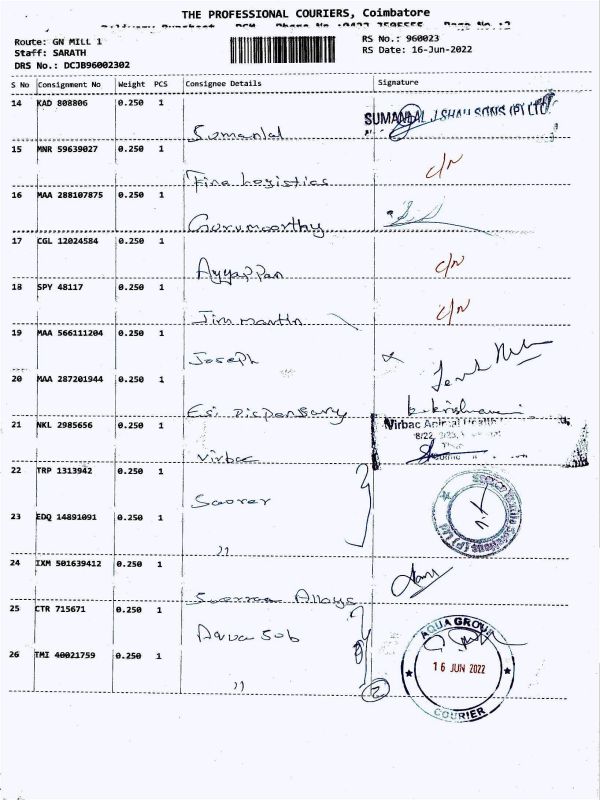 THE PROFESSIONAL COURIERS, Coimbatore
Page No.:2
Route: GN MILL 1
RS No.: 960023
Staff: SARATH
RS Date: 16-Jun-2022
DRS No.: DCJB96002302
S No Consignment No Weight PCS Consignee Details Signature
14 KAD 808806 0.250 1
Sumanlal
SUMANLAL J.SHAH SONS (P) LTD
15 MNR 59639027 0.250 1
Fine Logistics
C/N
16 MAA 288107875 0.250 1
Gurumoorthy
17 CGL 12024584 0.250 1
Ayyappan
C/N
18 SPY 48117 0.250 1
Jim martin
C/N
19 MAA 566111204 0.250 1
Joseph
20 MAA 287201944 0.250 1
Esi Dispensary
21 NKL 2985656 0.250 1
Virbac
Virbac Animal Health
22 TRP 1313942 0.250 1
Saorer
23 EDQ 14891091 0.250 1
"
24 IXM 501639412 0.250 1
Alloys
25 CTR 715671 0.250 1
Aqua Sub
26 TMI 40021759 0.250 1
"
2
AQUA GROUP
16 JUN 2022
COURIER